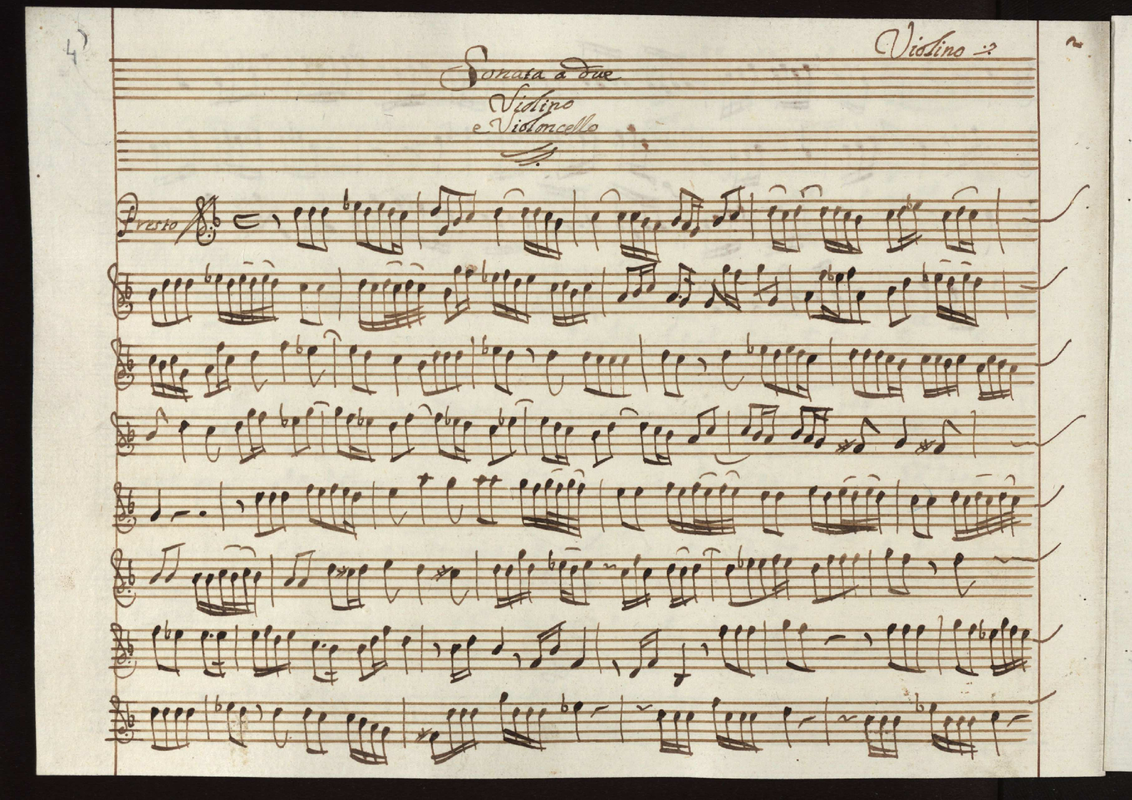 4
Violino
2
Sonata a due
Violino
e Violoncello
Presto